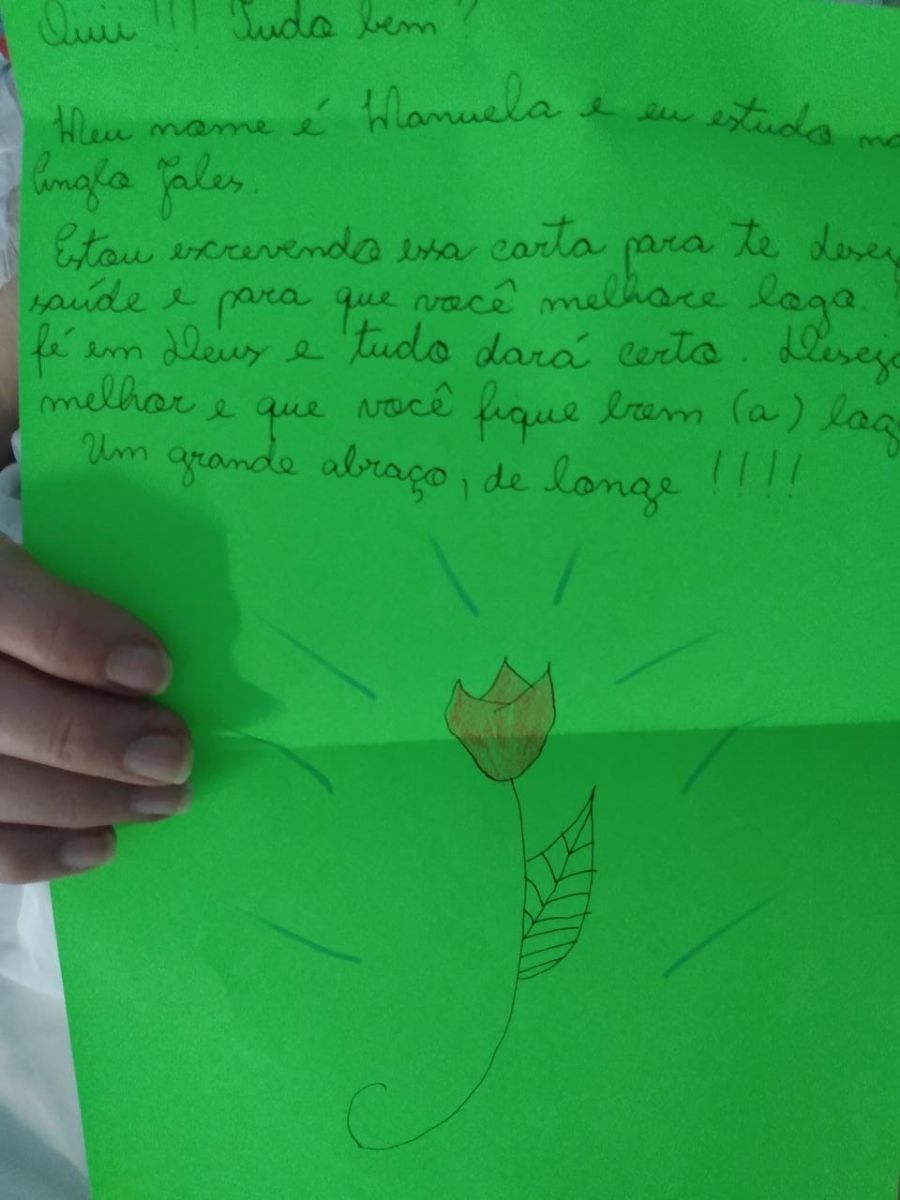 Oiii!!! Tudo bem?
Meu nome é Manuela e eu estudo no
Anglo Jales.
Estou escrevendo essa carta para te desej
saúde e para que você melhore logo.
fé em Deus e tudo dará certo. Desejo
melhor e que você fique bem (a) log
Um grande abraço, de longe!!!!